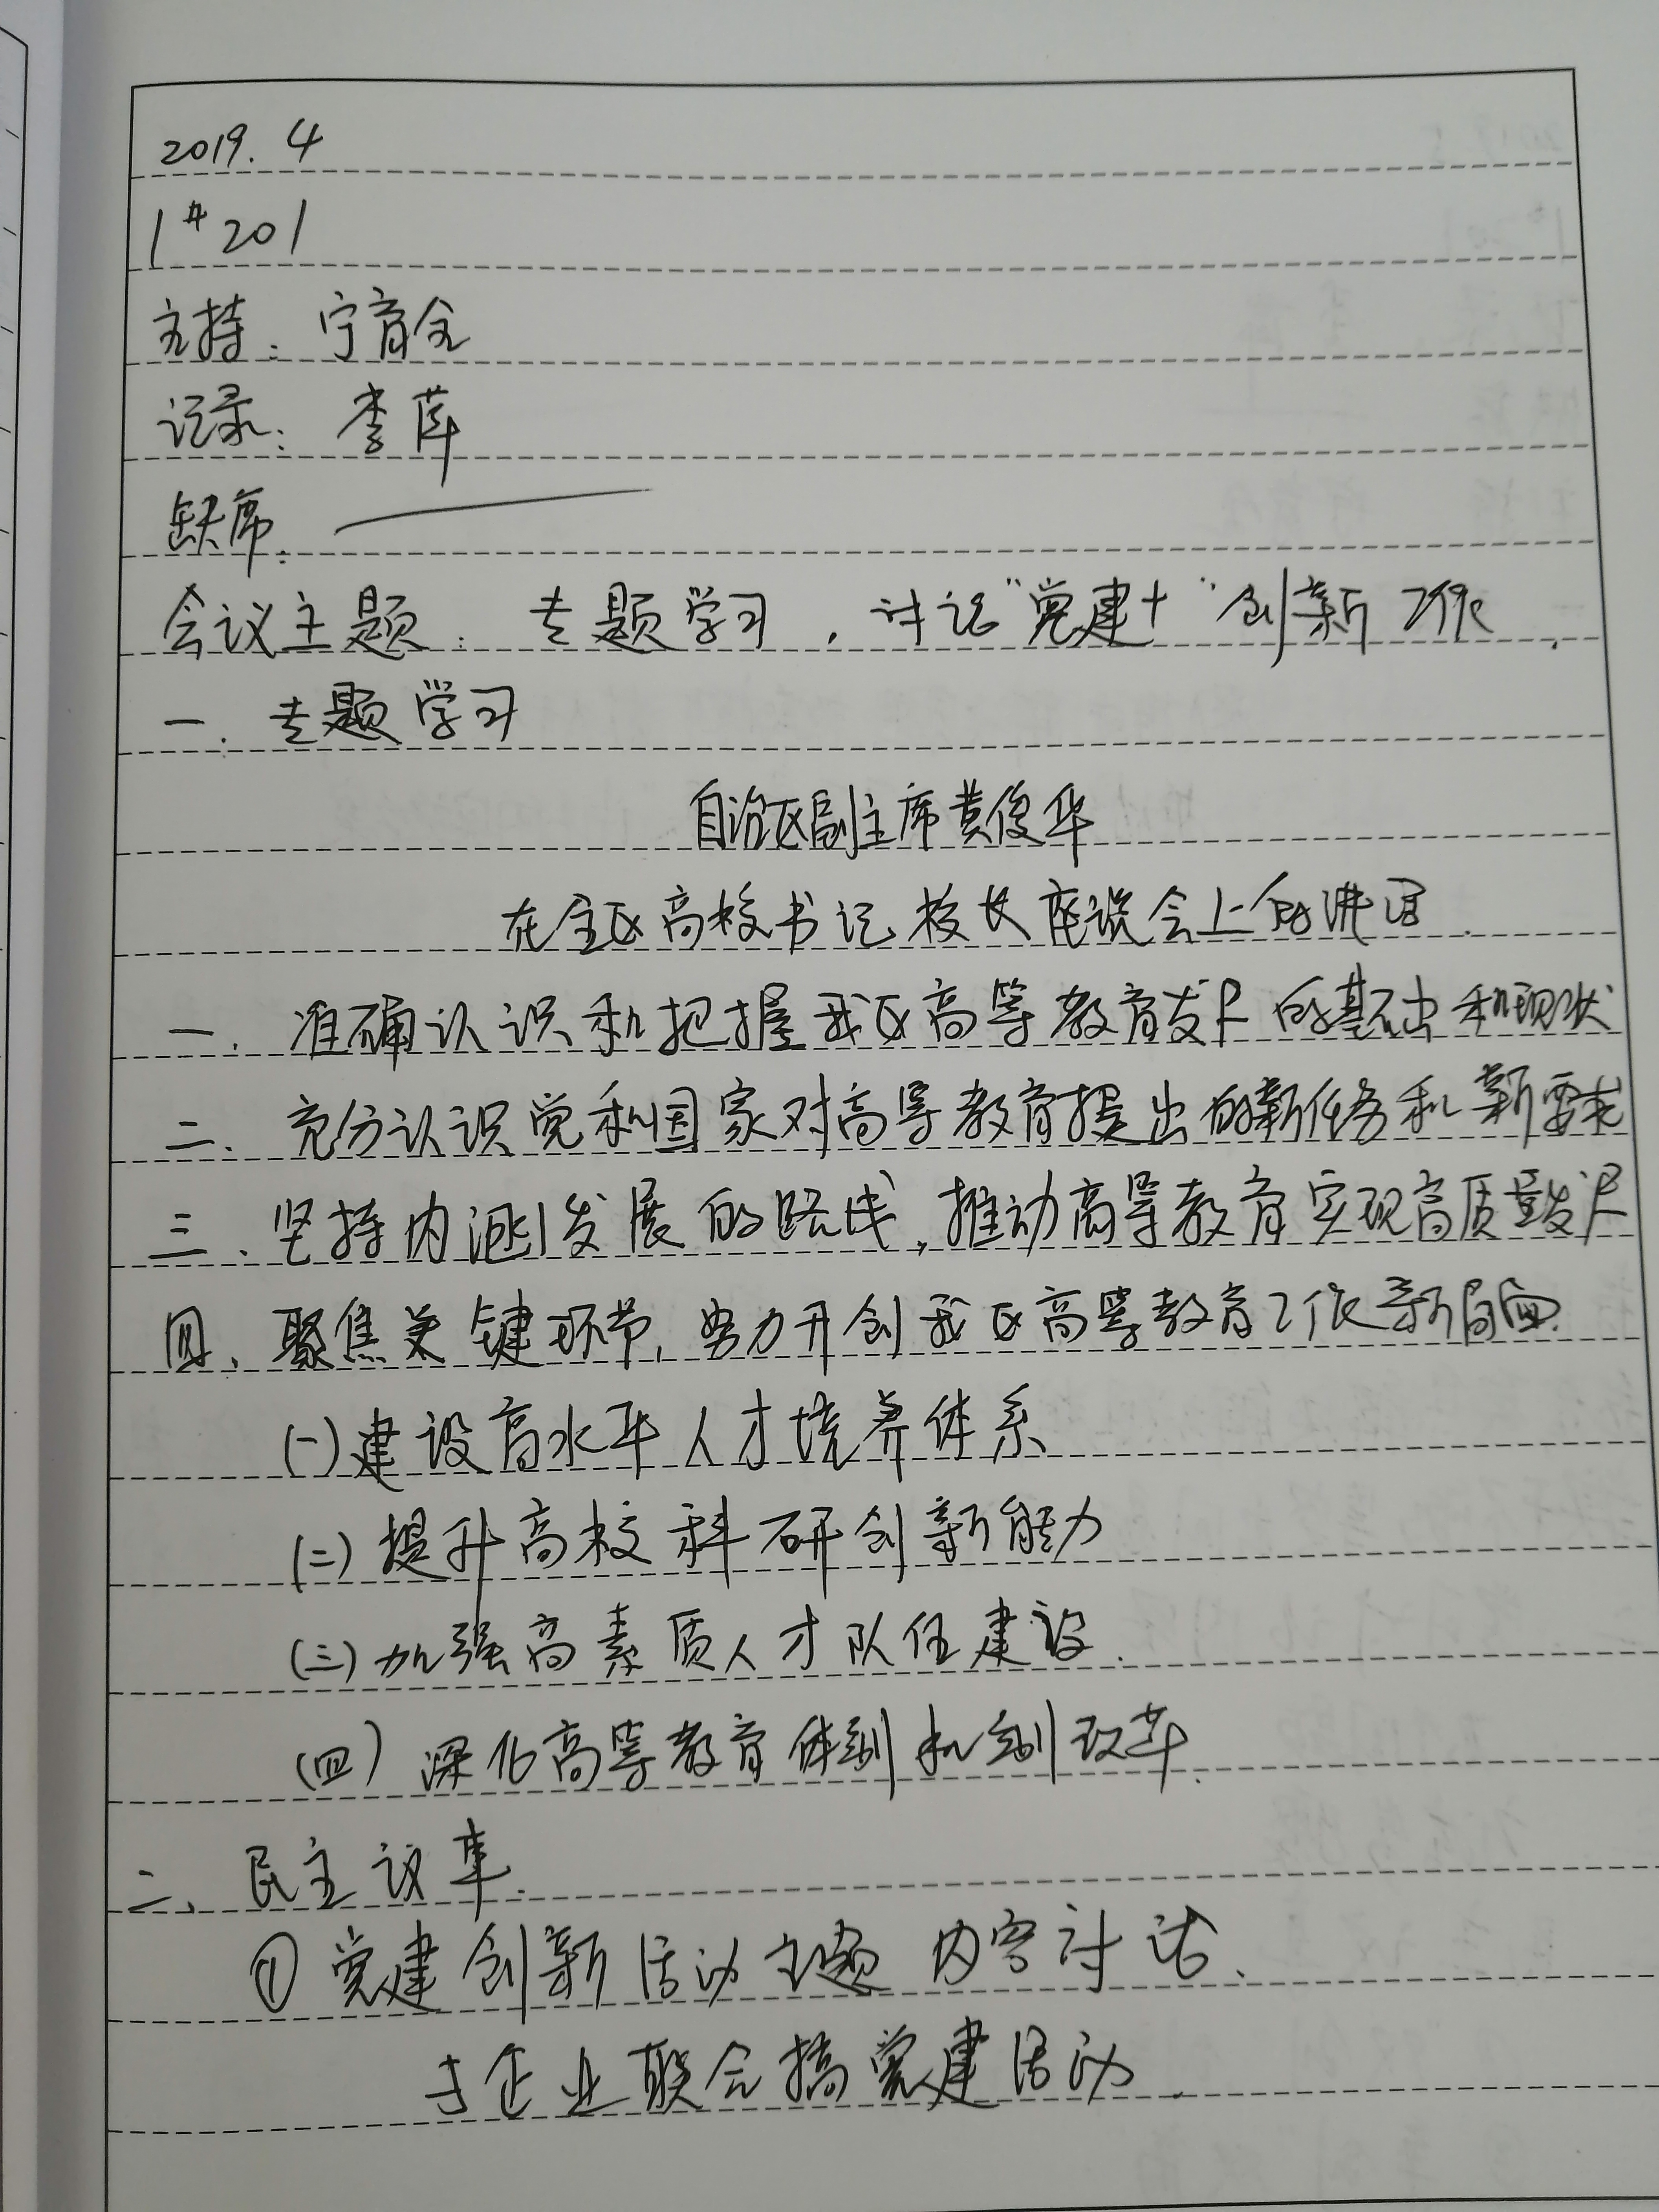 2019.4
1#201
主持：宁育全
记录：李萍
缺席：
会议主题：专题学习，讨论“党建+”创新工作.
一、专题学习
自治区副主席黄俊华
在全区高校书记校长座谈会上的讲话.
一、准确认识和把握我区高等教育发展的基础和现状
二、充分认识党和国家对高等教育提出的新任务和新要求
三、坚持内涵发展的路线,推动高等教育实现高质量发展
四、聚焦关键环节,努力开创我区高等教育工作新局面.
(一)建设高水平人才培养体系
(二)提升高校科研创新能力
(三)加强高素质人才队伍建设.
(四)深化高等教育体制机制改革.
二、民主议事.
①党建创新活动主题内容讨论、
与企业联合搞党建活动.